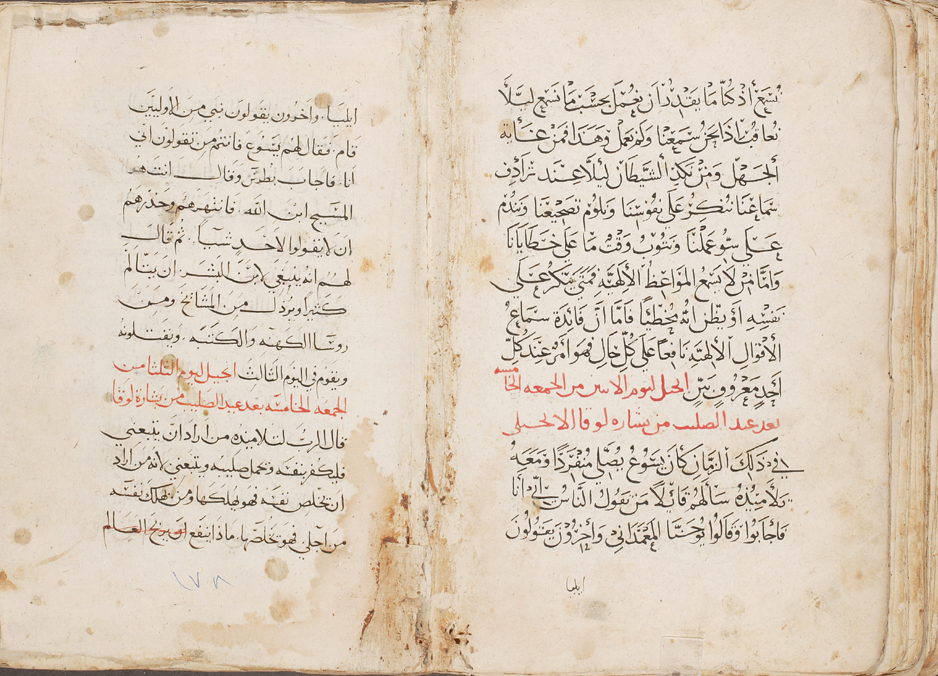 نسمع اذ كلما بقدر ان نعمل بحسب ما نسمع ليلا
نعاقب اذا نحن سمعنا ولم نعمل وهذا فمن غاية
الجهل ومن نكد الشيطان ليلا عند ترادف
سماعنا ننكر على نفوسنا ونلوم تضجيعنا ونندم
على سو عملنا ونتوب وقت ما على خطايانا
واما من لا يسمع المواعظ الالهيه فمتى يتكر على
نفسه او يظن انه مخطيا فاما ان فايدة سماع
الاقوال الالهيه نافعا على كل حال فهو امر عند كل
احد معروف بين انجيل ليوم الاثنين من الجمعه الخامسه
بعد عيد الصليب من بشاره لوقا الانجيلي
في ذلك الزمان كان يسوع يصلي منفردا ومعه
تلاميذه سالهم قائلا من يقول الناس اني انا
فاجابوا وقالوا يوحنا المعمداني واخرون يقولون
ايليا
ايليا. واخرون يقولون نبي من الاوليين
قام. فقال لهم يسوع فانتم من تقولون اني
انا. فاجاب بطرس وقال انت هو
المسيح ابن الله. فانتهرهم وحذرهم
ان لا يقولوا لاحد شيا. ثم قال
لهم انه ينبغي لابن البشر ان يتالم
كثيرا ويرذل من المشايخ ومن
روسا الكهنه والكتبه. ويقتلونه
ويقوم في اليوم الثالث انجيل ليوم الثلثا من
الجمعه الخامسه بعد عيد الصليب من بشارة لوقا
قال الرب لتلاميذه من اراد ان يتبعني
فليكفر بنفسه وبحمل صليبه ويتبعني لانه من اراد
ان يخلص نفسه فهو يهلكها ومن يهلك نفسه
من اجلي فهو يخلصها. ماذا ينفع لو يربح العالم
١٧٨